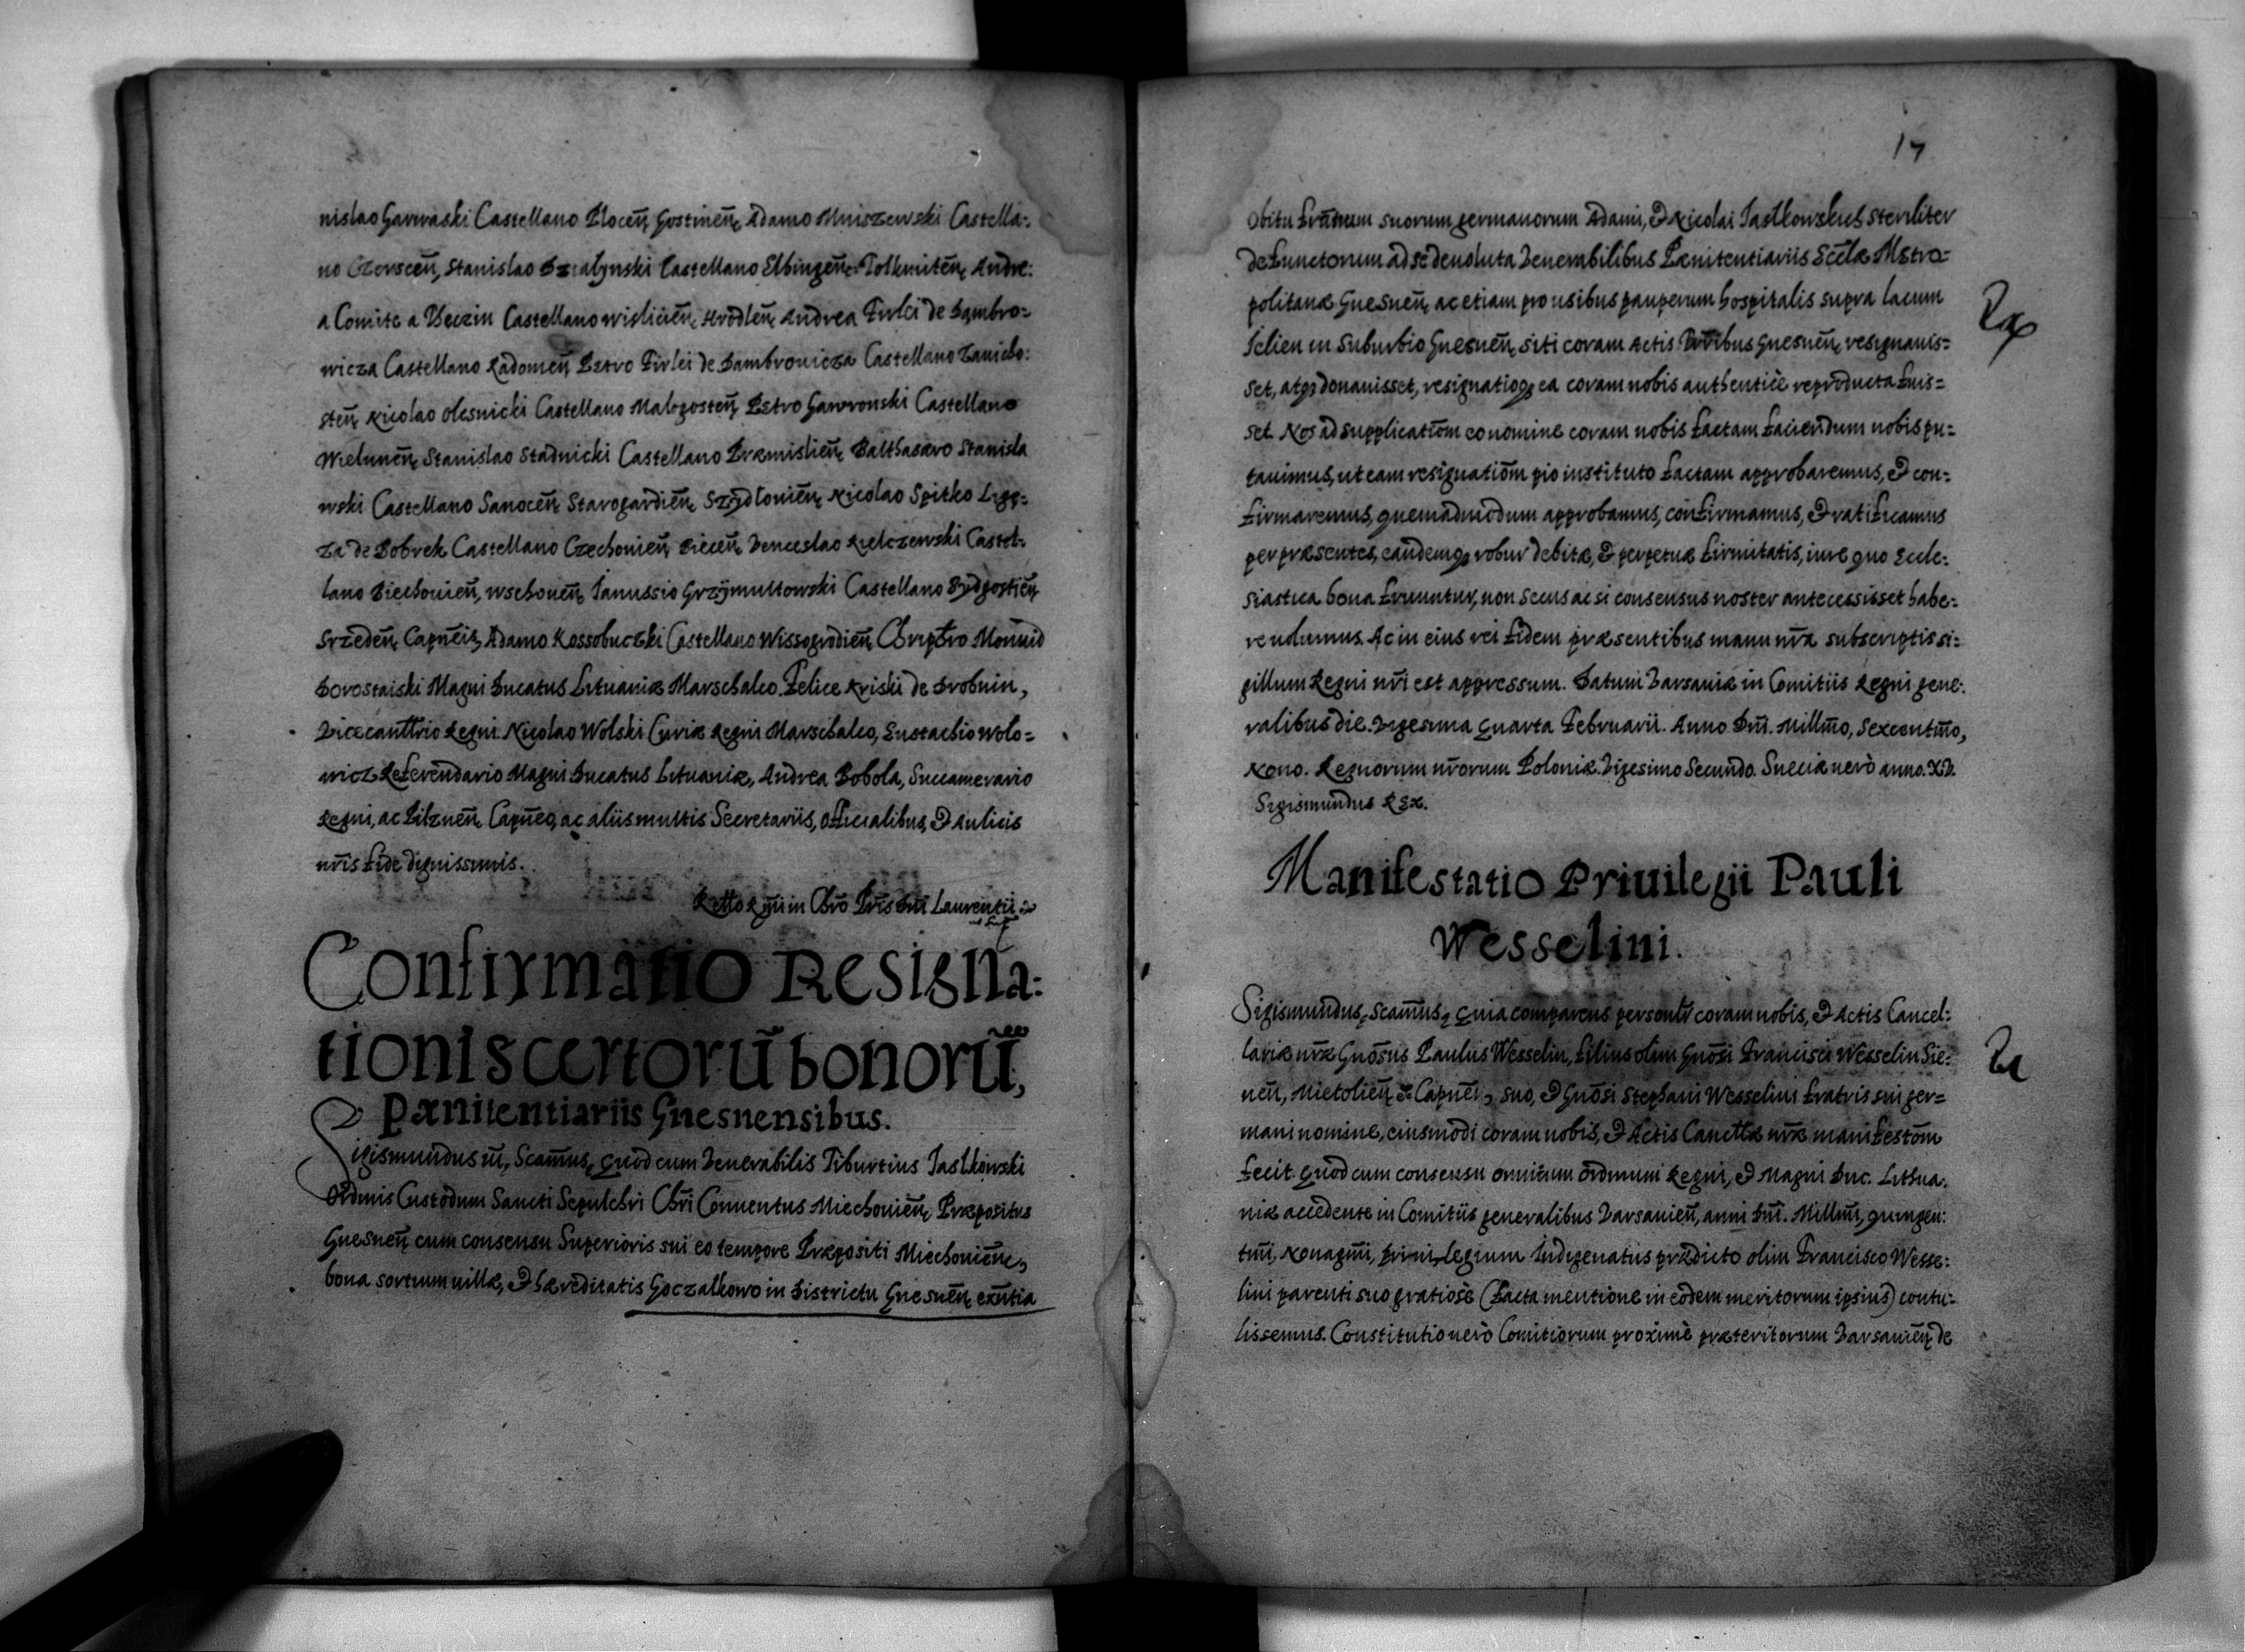 nislao Garwaski Castellano Plocen̄, Gostinen̄, Adamo Mniszewski Castella-
no Czerscen̄, Stanislao Dzialynski Castellano Elbingen̄, Tolkmiten̄, Andre-
a Comite a Tenczin Castellano Wislicien̄, Hrodlen̄, Andrea Firlei de Dambro-
wicza Castellano Radomen̄, Petro Firlei de Dambrowicza Castellano Zawicho-
sten̄, Nicolao Olesnicki Castellano Malogosten̄, Petro Gawronski Castellano
Wielunen̄, Stanislao Stadnicki Castellano Præmislien̄, Balthasaro Stanisla
wski Castellano Sanocen̄, Starogardien̄, Szydlowien̄, Nicolao Spitko Ligę-
za de Bobrek Castellano Czechowien̄, Biecen̄, Venceslao Kielczewski Castel-
lano Biechowien̄, wschowen̄, Ianussio Grzÿmultowski Castellano Bydgostien̄,
Srzeden̄, Capn̄eis, Adamo Kossobuczki Castellano Wissogrodien̄, Chrīptro Monwid
Dorostaiski Magni Ducatus Lituaniæ Marschalco. Felice Kriski de Drobnin,
Vicecanll̄rio Regni. Nicolao Wolski Curiæ Regni Marschalco, Eustachio Wolo-
wicz Referendario Magni Ducatus Lituaniæ, Andrea Bobola, Succamerario
Regni, ac Pilznen̄, Capn̄eo, ac aliis multis Secretariis, Officialibus, & Aulicis
nr̄is fide dignissimis.
Rel̄to Rm̄i in Chr̄o Pr̄is Dn̄i Laurentii
Confirmatio Resigna-
tionis certorū bonorū,
Pænitentiariis Gnesnensibus.
Sigismundus III, Scam̄us, Quod cum Venerabilis Tiburtius Iastkowski
Ordinis Custodum Sancti Sepulchri Chr̄i Conuentus Miechowien̄, Præpositus
Gnesnen̄, cum consensu Superioris sui eo tempore Præpositi Miechowien̄,
bona sortium uillæ, & hæreditatis Goczalkowo in Districtu Gnesnen̄, exn̄tia
17
obitu fratrum suorum germanorum Adami, & Nicolai Iastkowskich steriliter
defunctorum ad se deuoluta Venerabilibus Pænitentiariis Eccl̄æ Metro-
politanæ Gnesnen̄, ac etiam pro usibus pauperum hospitalis supra lacum
Ielien in Suburbio Gnesnen̄, siti coram Actis Gnesnen̄, resignauis-
set, atq3 donauisset, resignatioq3 ea coram nobis authenticè reproducta fuis-
set. Nos ad supplicatiōm eo nomine coram nobis factam faciendum nobis pu-
tauimus, ut eam resignatiōm pio instituto factam approbaremus, & con-
firmaremus, quemadmodum approbamus, confirmamus, & ratificamus
per præsentes, eandemq3 robur debitæ, & perpetuæ firmitatis, iure quo Eccle-
siastica bona fruuntur, non secus ac si consensus noster antecessisset habe-
re uolumus. Ac in eius rei fidem præsentibus manu nr̄a subscriptis si-
gillum Regni nr̄i est appressum. Datum Varsauiæ in Comitiis Regni gene-
ralibus die. Vigesima Quarta Februarii. Anno Dn̄i. Millm̄o, Sexcentm̄o,
Nono. Regnorum nr̄orum Poloniæ. Vigesimo Secundo. Sueciæ uerò anno. XV.
Sigismundus Rex.
Manifestatio Priuilegii Pauli
Wesselini.
Sigismundus, Scam̄us, Quia comparens personlr̄ coram nobis, & Actis Cancel-
lariæ nr̄æ Gnōsus Paulus Wesselin, filius olim Gnōsi Francisci Wesselin Sie-
nen̄, Mietolien̄ &c. Capn̄ei, suo, & Gnōsi Stephani Wesselini fratris sui ger-
mani nomine, eiusmodi coram nobis, & Actis Canell̄æ nr̄æ manifestōm
fecit. Quod cum consensu omnium ordinum Regni, & Magni Duc. Lithua-
niæ accedente in Comitiis generalibus Varsauien̄, anni Dn̄i. Millm̄i, quingen-
tm̄i, Nonagm̄i, priuilegium Indigenatus prædicto olim Francisco Wesse-
lini parenti suo gratiosè (facta mentione in eodem meritorum ipsius) contu-
lissemus. Constitutio uerò Comitiorum proximè præteritorum Varsauien̄, de